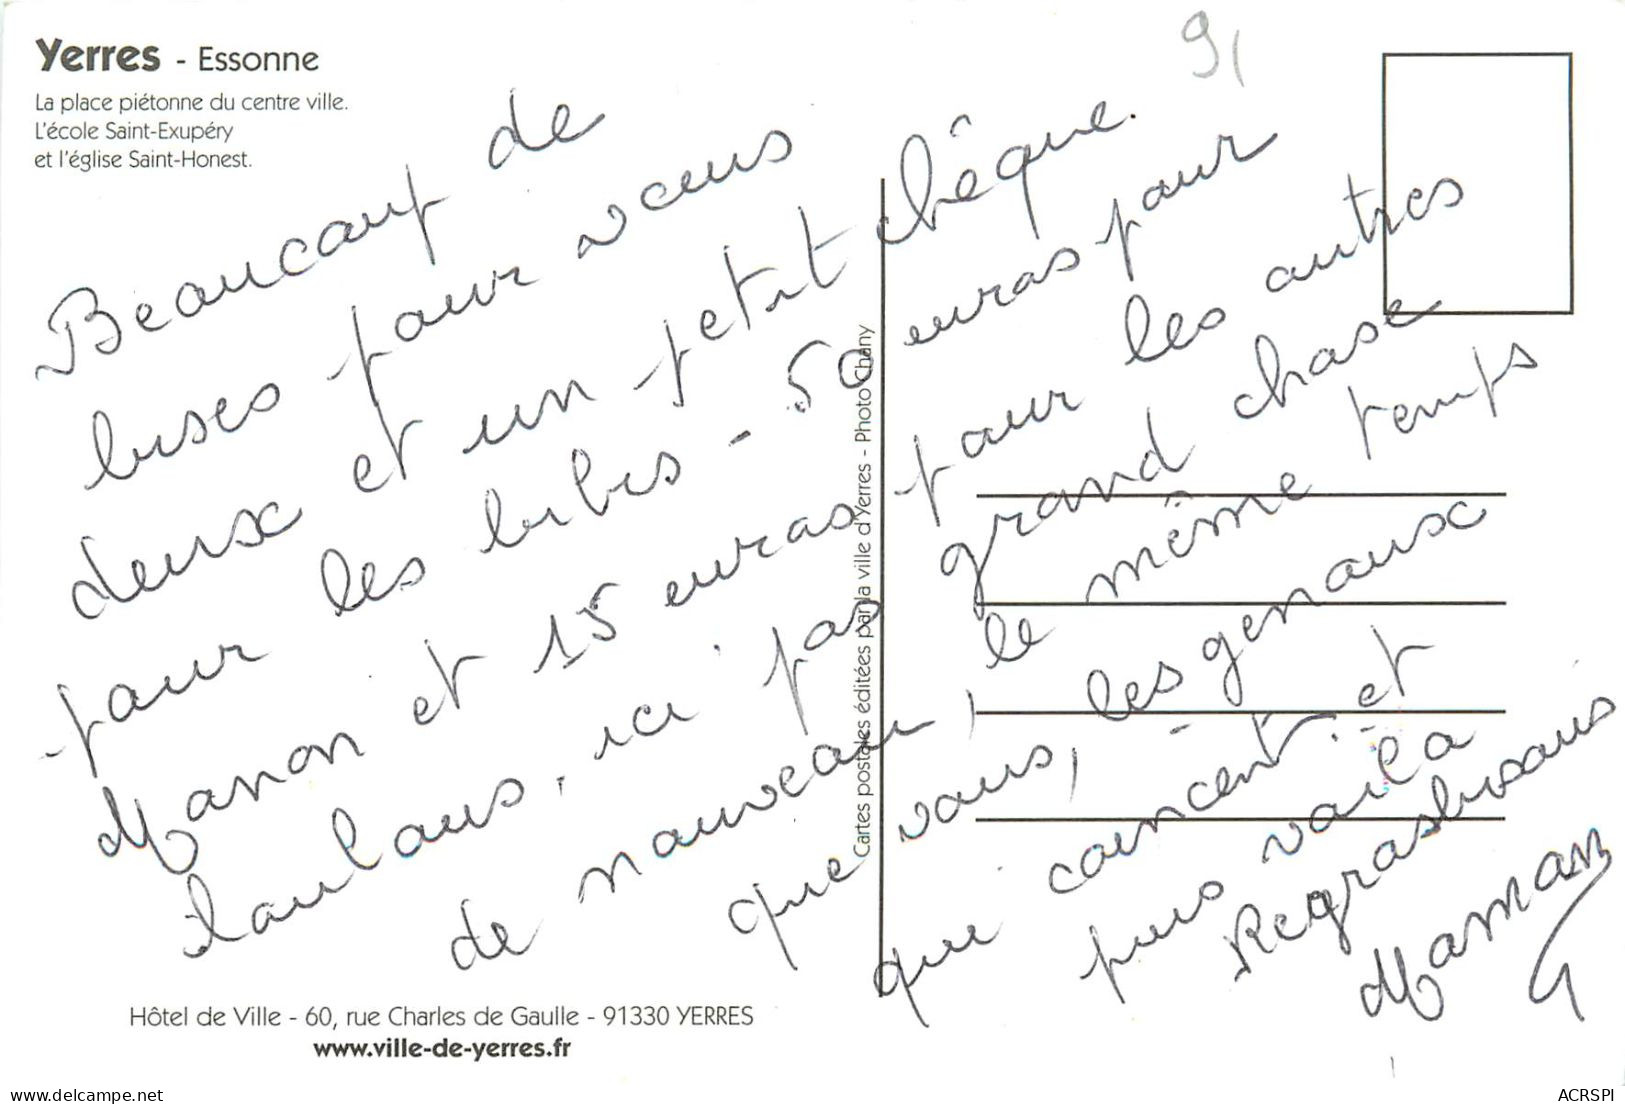 Yerres - Essonne
La place piétonne du centre ville.
L'école Saint-Exupéry
et l'église Saint-Honest.
91
Beaucoup de
bises pour vous
deux et un petit chêque.
pour les bibis - 50 euros pour
Manon et 15 euros pour les autres
loulous, ici pas grand chose
de nouveau, le même temps
que vous, les genoux
qui coincent. et
puis voila
Regrosbisous
Maman
Cartes postales éditées par la ville d'Yerres - Photo Chany
Hôtel de Ville - 60, rue Charles de Gaulle - 91330 YERRES
www.ville-de-yerres.fr
delcampe.net
ACRSPI